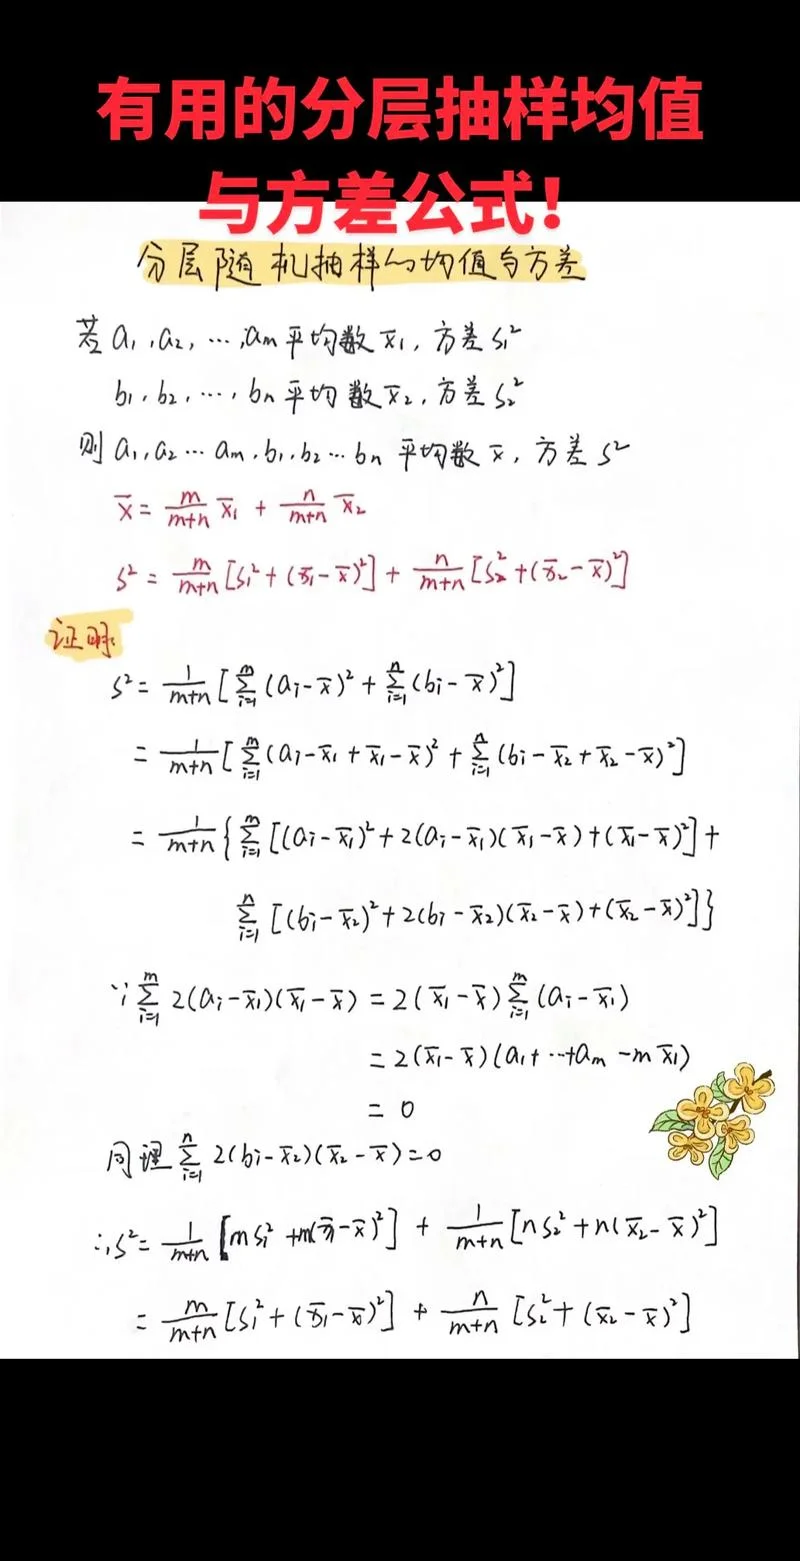 有用的分层抽样均值
与方差公式!
分层随机抽样的均值与方差
若 a₁,a₂,…,aₘ 平均数 x̄₁, 方差 s₁²
b₁,b₂,…,bₙ 平均数 x̄₂, 方差 s₂²
则 a₁,a₂…aₘ,b₁,b₂…bₙ 平均数 x̄, 方差 s²
x̄ = m/(m+n) x̄₁ + n/(m+n) x̄₂
s² = m/(m+n) [s₁²+(x̄₁-x̄)²] + n/(m+n) [s₂²+(x̄₂-x̄)²]
证明:
s² = 1/(m+n) [∑ᵢ₌₁ᵐ (aᵢ-x̄)² + ∑ᵢ₌₁ⁿ (bᵢ-x̄)²]
= 1/(m+n) [∑ᵢ₌₁ᵐ (aᵢ-x̄₁+x̄₁-x̄)² + ∑ᵢ₌₁ⁿ (bᵢ-x̄₂+x̄₂-x̄)²]
= 1/(m+n) {∑ᵢ₌₁ᵐ [(aᵢ-x̄₁)²+2(aᵢ-x̄₁)(x̄₁-x̄)+(x̄₁-x̄)²] +
∑ᵢ₌₁ⁿ [(bᵢ-x̄₂)²+2(bᵢ-x̄₂)(x̄₂-x̄)+(x̄₂-x̄)²]}
∵ ∑ᵢ₌₁ᵐ 2(aᵢ-x̄₁)(x̄₁-x̄) = 2(x̄₁-x̄) ∑ᵢ₌₁ᵐ (aᵢ-x̄₁)
= 2(x̄₁-x̄)(a₁+…+aₘ-m x̄₁)
= 0
同理 ∑ᵢ₌₁ⁿ 2(bᵢ-x̄₂)(x̄₂-x̄)=0
∴ s² = 1/(m+n) [ms₁²+m(x̄₁-x̄)²] + 1/(m+n) [ns₂²+n(x̄₂-x̄)²]
= m/(m+n) [s₁²+(x̄₁-x̄)²] + n/(m+n) [s₂²+(x̄₂-x̄)²]